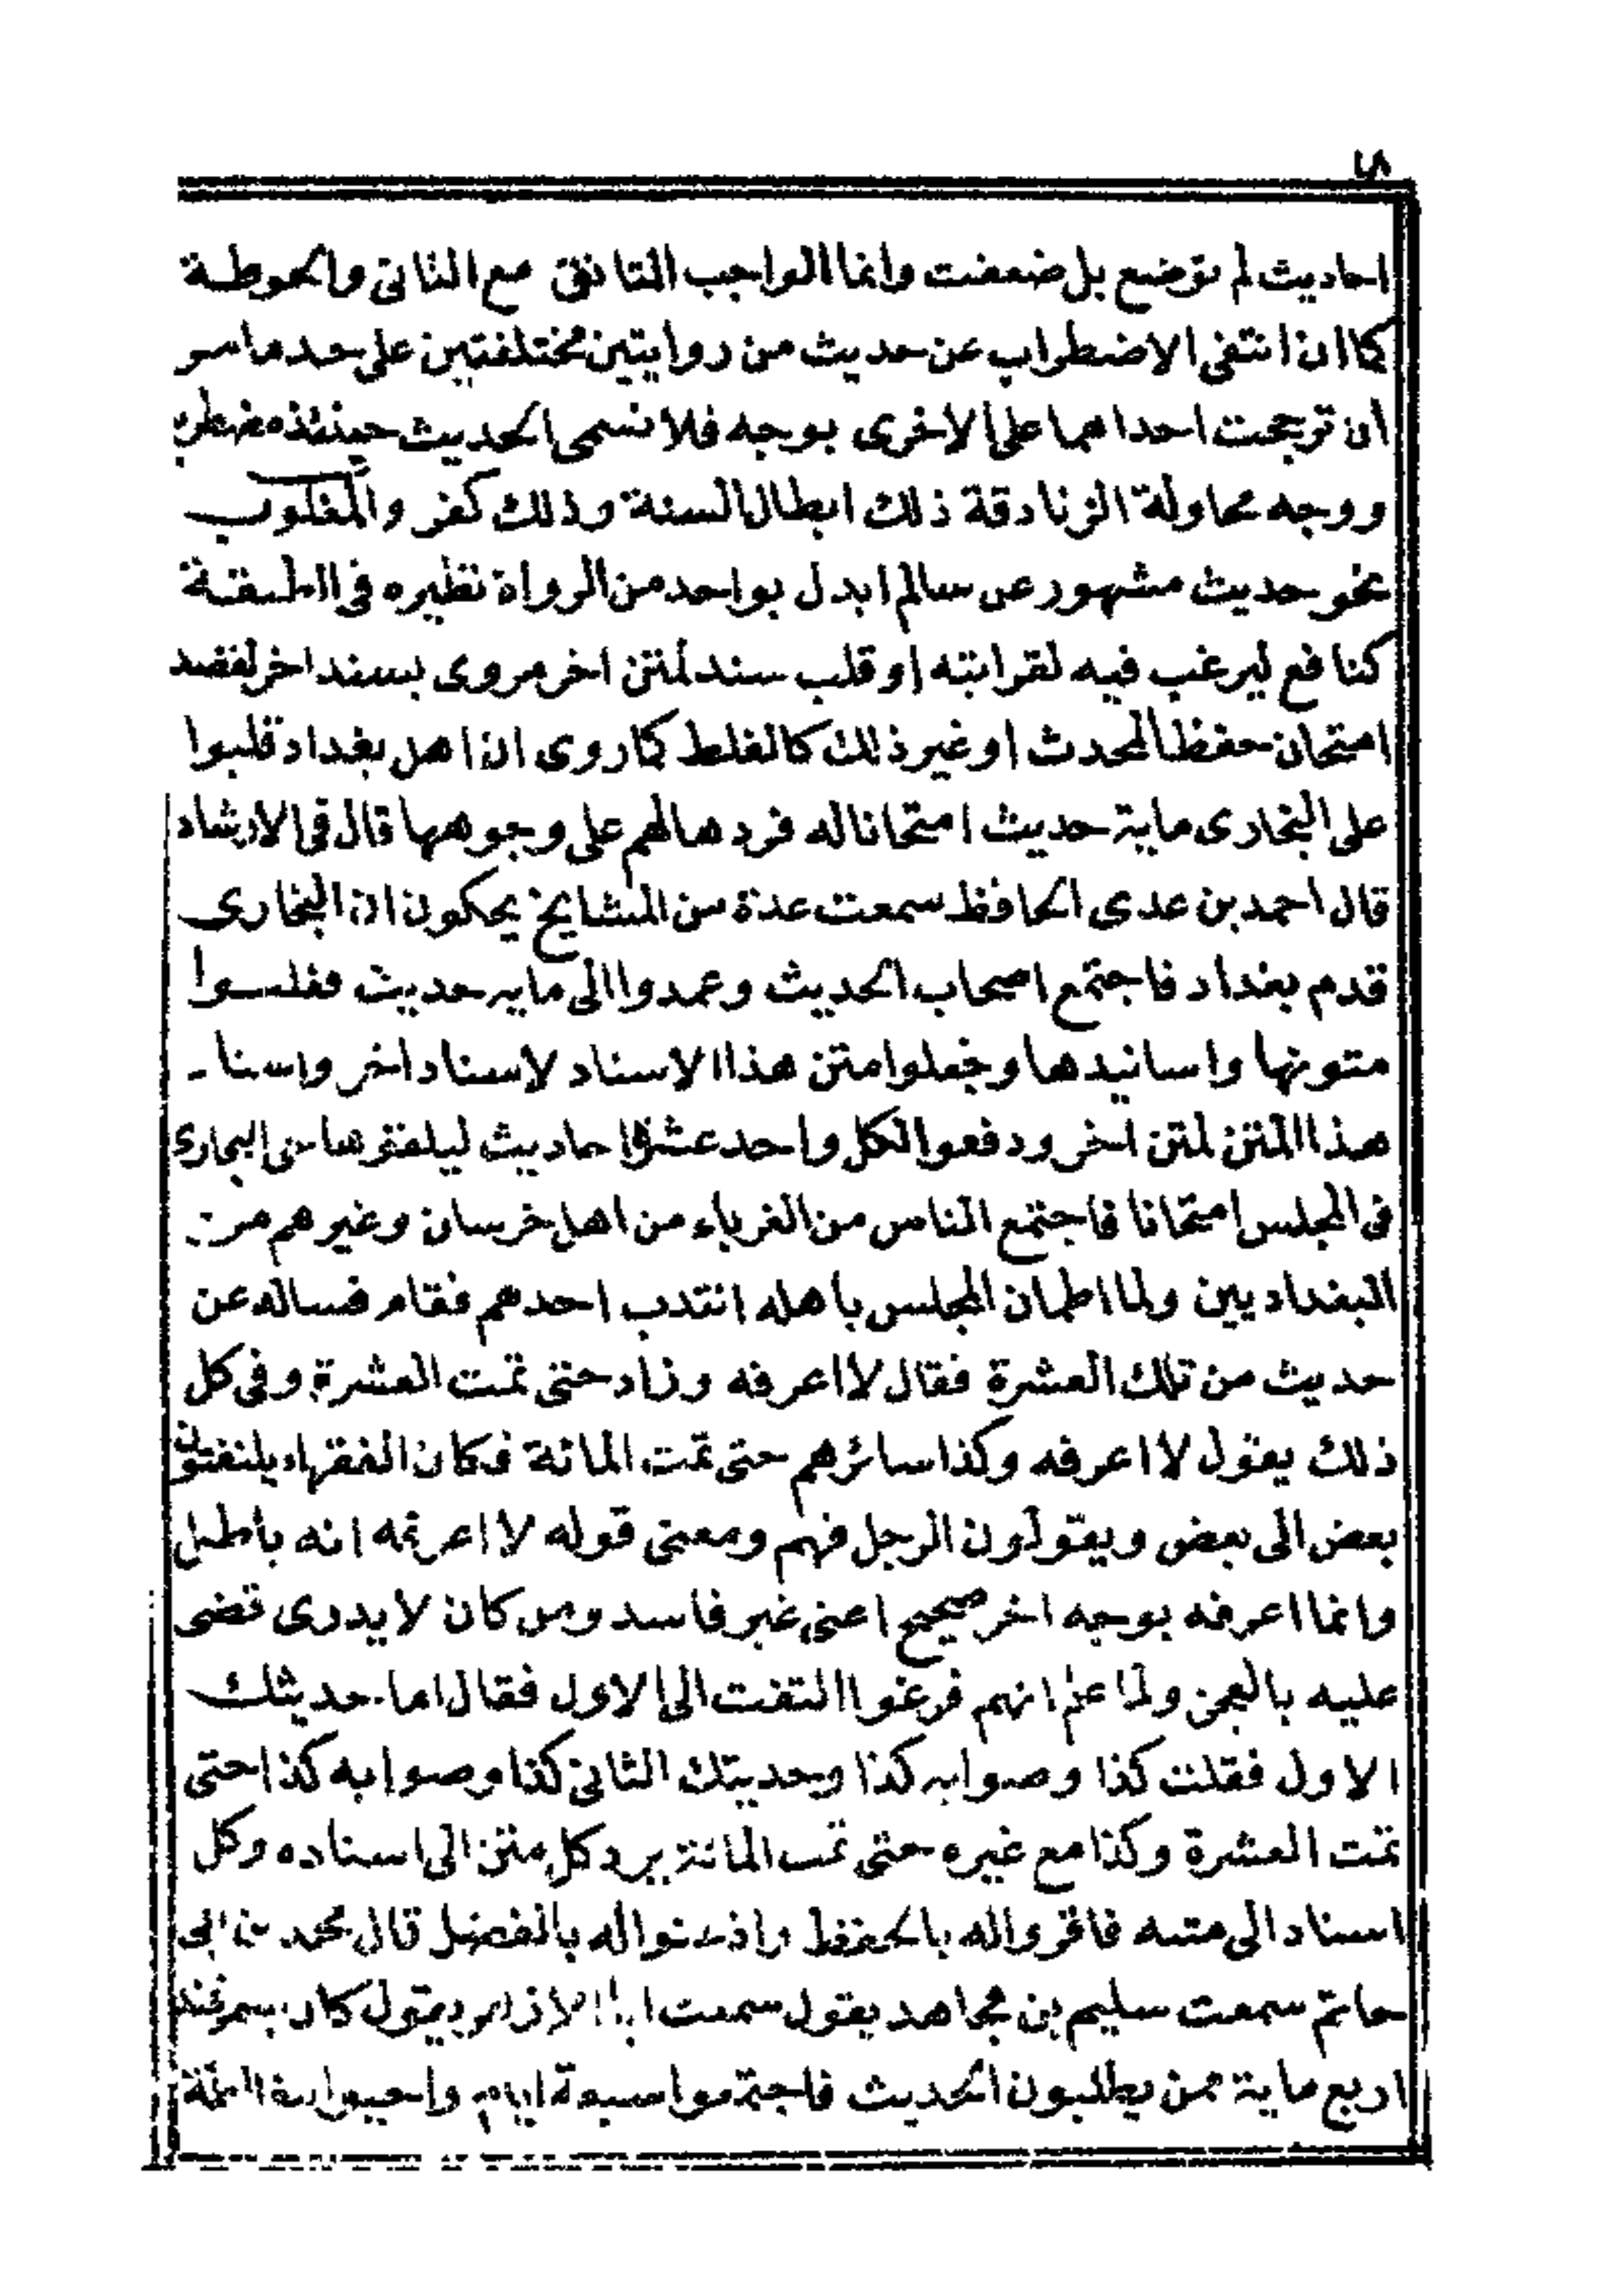 احاديث لم توضع بل ضعفت وانما الواجب التانق مع التانى والحوطة
كما ان انتفى الاضطراب عن حديث من روايتين مختلفتين على حد ماسو
ان ترجحت احداهما على الاخرى بوجه فلا نسمى الحديث حينئذ مضطرب
ووجه محاولة الزنادقة ذلك ابطال السنة وذلك كفر والمقلوب
نحو حديث مشهور عن سالم ابدل بواحد من الرواة نظيره فى الطبقة
كنافع ليرغب فيه لقرابته او قلب سند لمتن اخر مروى بسند اخر لقصد
امتحان حفظ المحدث او غير ذلك كالغلط كما روى ان اهل بغداد قلبوا
على البخارى ماية حديث امتحاناله فردها لهم على وجوهها قال فى الارشاد
قال احمد بن عدى الحافظ سمعت عدة من المشايخ يحكون ان البخارى
قدم بغداد فاجتمع اصحاب الحديث وعمدوا الى مايه حديث فقلبوا
متونها واسانيدها وجعلوا متن هذا الاسناد لاسناد اخر واسناد
هذا المتن لمتن اخر ودفعوا لكل واحد عشرة احاديث ليلقوها على البخارى
فى المجلس امتحانا فاجتمع الناس من الغرباء من اهل خرسان وغيرهم من
البغداديين ولما اطمان المجلس باهله انتدب احدهم فقام فساله عن
حديث من تلك العشرة فقال لا اعرفه وزاد حتى تمت العشرة وفى كل
ذلك يقول لا اعرفه وكذا سائرهم حتى تمت المائة فكان الفقهاء يلتفتون
بعض الى بعض ويقولون الرجل فهم ومعنى قوله لا اعرفه انه باطل
وانما اعرفه بوجه اخر صحيح اعنى غير فاسد ومن كان لا يدرى قضى
عليه بالعجز ولما علم انهم فرغوا التفت الى الاول فقال اما حديثك
الاول فقلت كذا وصوابه كذا وحديثك الثانى كذا وصوابه كذا حتى
تمت العشرة وكذا مع غيره حتى تمت المائة يرد كل متن الى اسناده وكل
اسناد الى متنه فاقرواله بالحفظ واذعنواله بالفضل قال محمد بن ابى
حاتم سمعت سليم بن مجاهد يقول سمعت ابا الازهر يقول كان بسمرقند
اربع ماية ممن يطلبون الحديث فاجتمعوا سبعة ايام واحبوا مغالطة